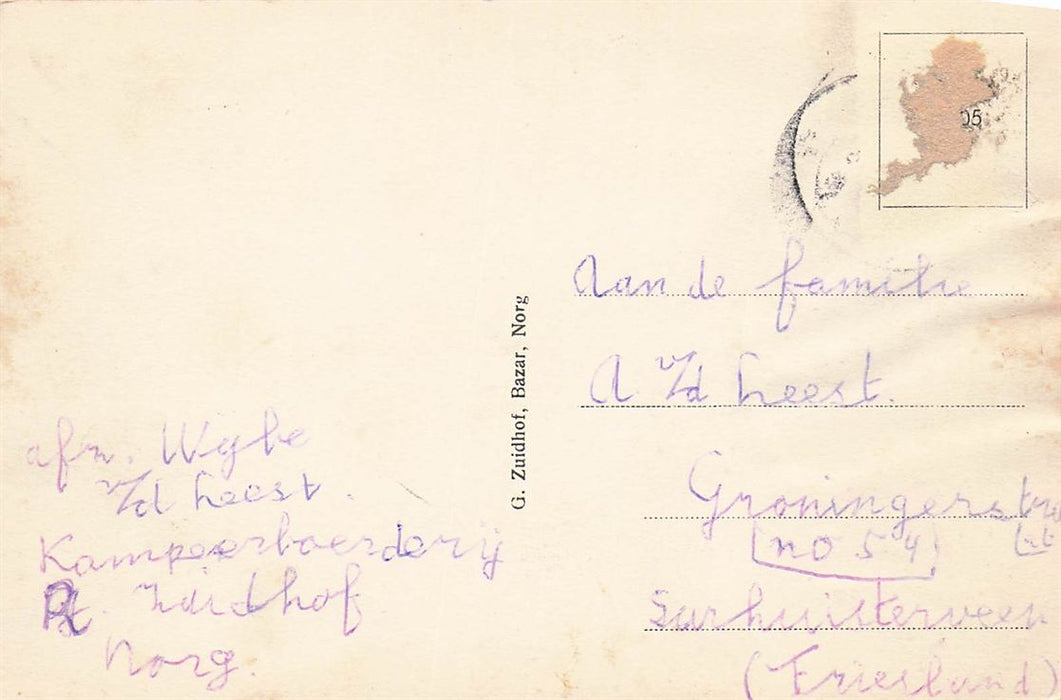 05
Aan de familie
A v/d heest.
Groningerstra
at
(no 54)
Surhuisterveen
(Friesland)
G. Zuidhof, Bazar, Norg
afz. Wybe
v/d heest.
Kampeerboerderij
Zuidhof
Norg.